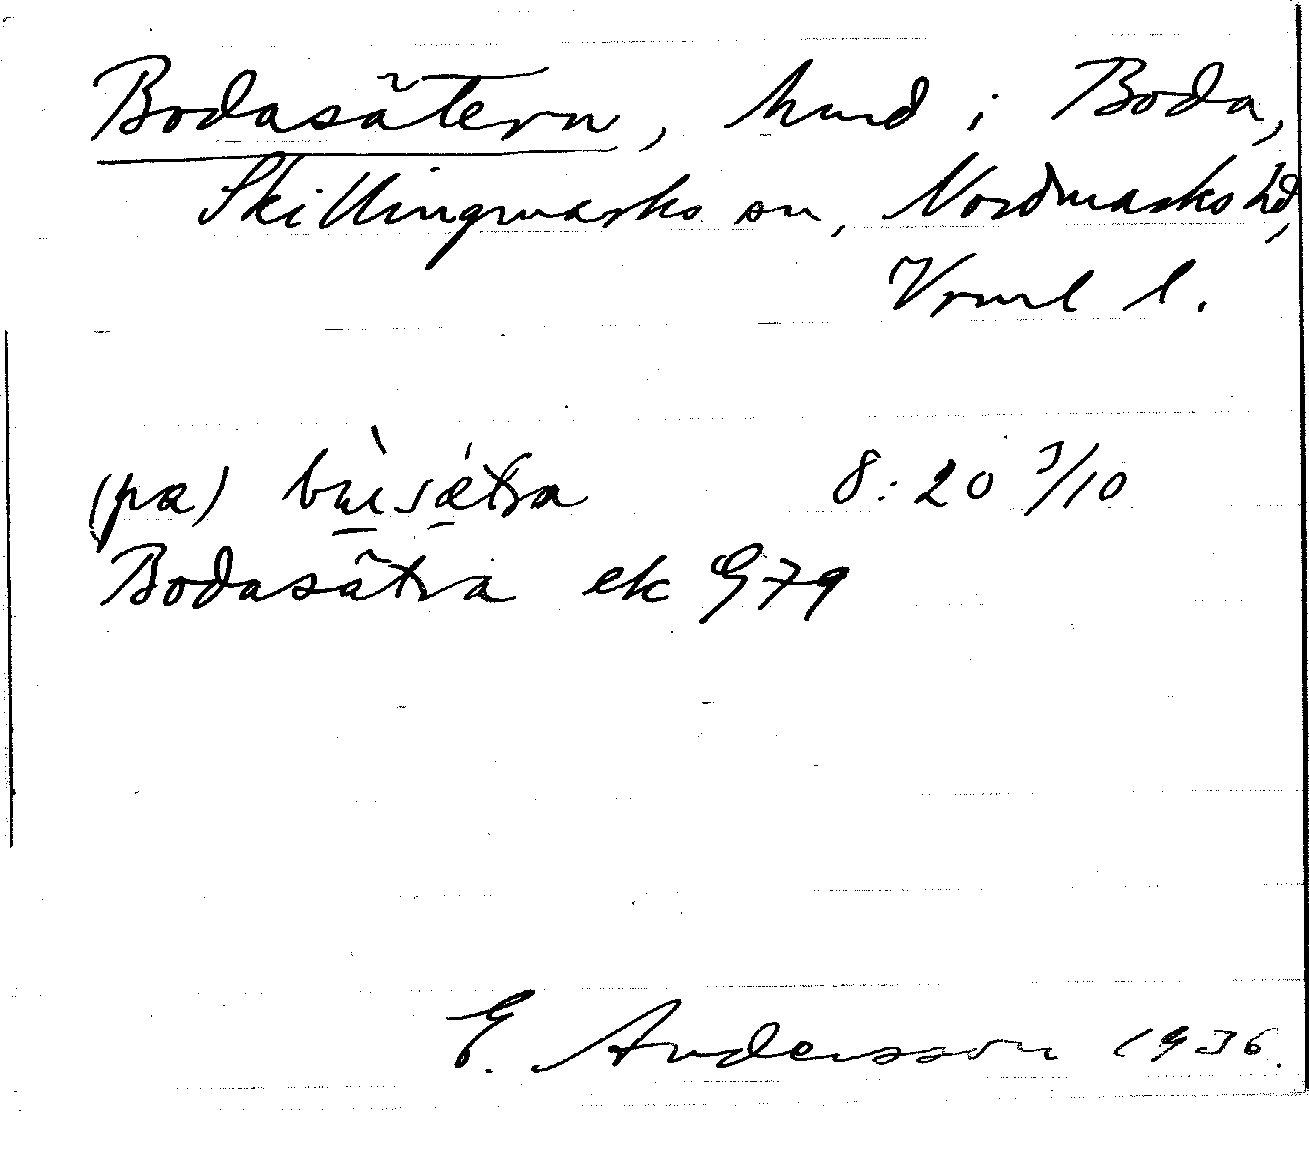 Bodasätern, hmd i Boda,
Skillingmarks sn, Nordmarks hd,
Vrml l.
(pa) bu̠sæ̠tra 8:20 3/10
Bodasätra ek G79
E. Andersson 1936.